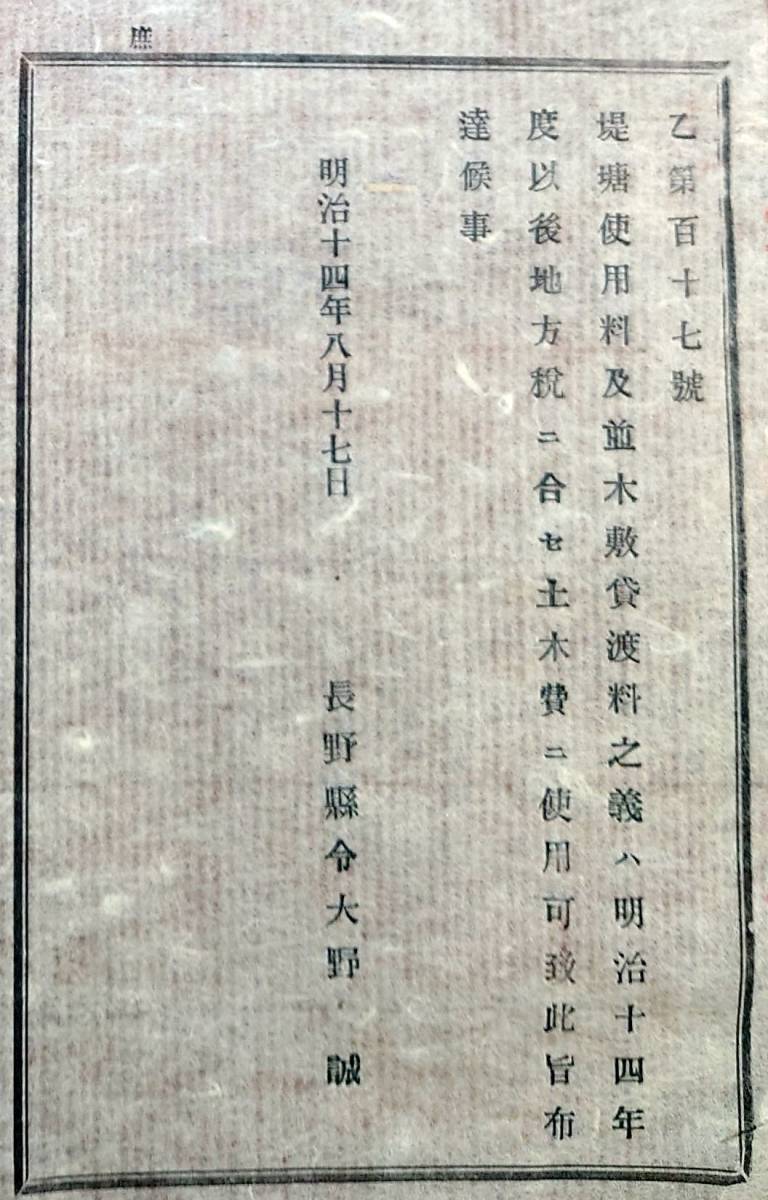 乙第百十七號
堤塘使用料及並木敷貸渡料之義ハ明治十四年
度以後地方稅ニ合セ土木費ニ使用可致此旨布
達候事
明治十四年八月十七日 長野縣令大野 誠
庶